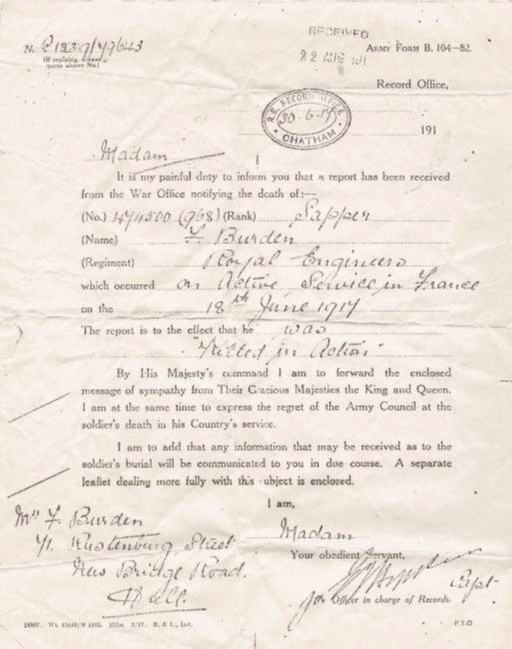 RECEIVED
22 AUG 191
No. C1239/47643
(If replying, please
quote above No.)
ARMY FORM B. 104—82.
Record Office,
R.E. RECORD OFFICE
30-6-17
CHATHAM
191
Madam
It is my painful duty to inform you that a report has been received
from the War Office notifying the death of:—
(No.) 474500 (968) (Rank) Sapper
(Name) F Burden
(Regiment) Royal Engineers
which occurred on Active Service in France
on the 18th June 1917
The report is to the effect that he was
"Killed in Action"
By His Majesty's command I am to forward the enclosed
message of sympathy from Their Gracious Majesties the King and Queen.
I am at the same time to express the regret of the Army Council at the
soldier's death in his Country's service.
I am to add that any information that may be received as to the
soldier's burial will be communicated to you in due course. A separate
leaflet dealing more fully with this subject is enclosed.
I am,
Madam
Your obedient Servant,
Capt
for Officer in charge of Records.
Mrs F. Burden
71. Rustenburg Street
New Bridge Road.
Hull.
P.T.O